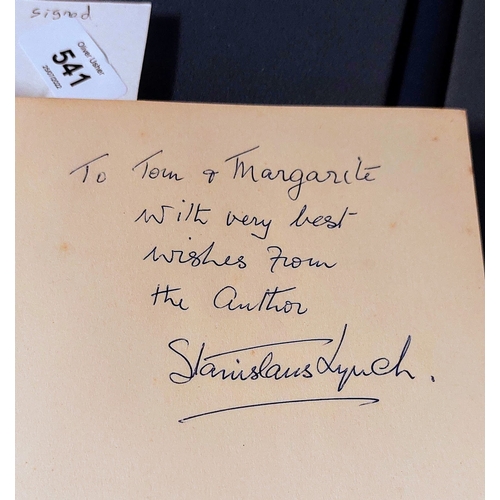 signed
Oliver Usher
541
25/07/2022
To Tom & Margarite
with very best
wishes from
the Author
Stanislaus Lynch.